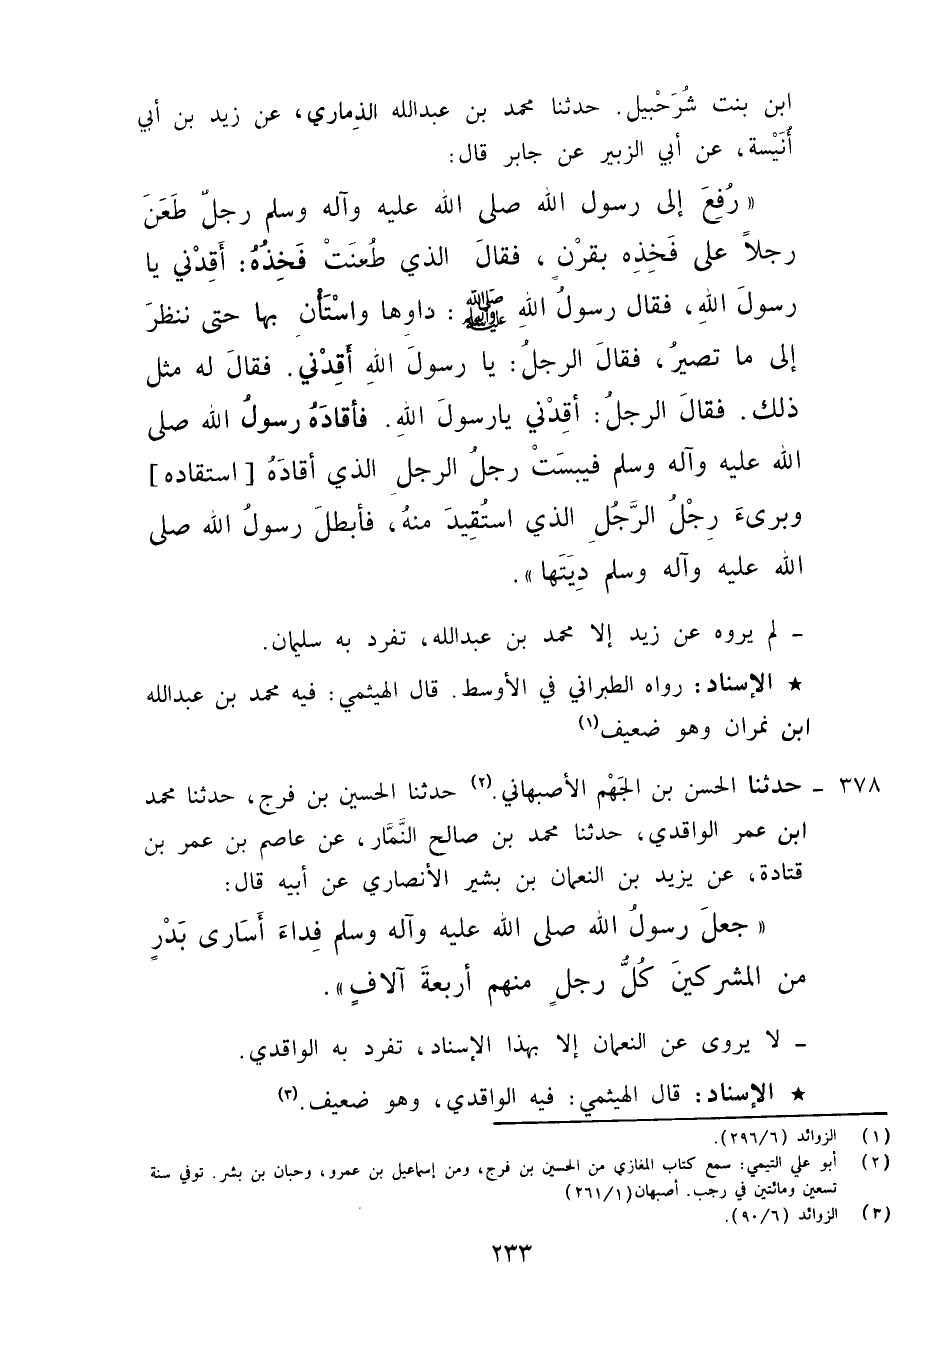 ابن بنت شُرَحْبيل. حدثنا محمد بن عبدالله الذِماري، عن زيد بن أبي
أُنَيْسة، عن أبي الزبير عن جابر قال:
« رُفِعَ إلى رسول الله صلى الله عليه وآله وسلم رجلٌ طَعَنَ
رجلاً على فَخِذِه بقرْنٍ، فقالَ الذي طُعنَتْ فَخِذُهُ: أَقِدْني يا
رسولَ اللهِ، فقال رسولُ اللهِ ﷺ: داوِها واسْتَأْنِ بها حتى ننظرَ
إلى ما تصيرُ، فقالَ الرجلُ: يا رسولَ اللهِ أَقِدْني. فقالَ له مثل
ذلك. فقالَ الرجلُ: أقِدْني يارسولَ اللهِ. فأقادَهُ رسولُ الله صلى
الله عليه وآله وسلم فيبسَتْ رجلُ الرجلِ الذي أقادَهُ [ استقاده ]
وبرىءَ رِجْلُ الرَّجُلِ الذي استُقِيدَ منهُ، فأبطلَ رسولُ الله صلى
الله عليه وآله وسلم دِيَتَها ».
- لم يروه عن زيد إلا محمد بن عبدالله، تفرد به سليمان.
★ الإسناد: رواه الطبراني في الأوسط. قال الهيثمي: فيه محمد بن عبدالله
ابن نمران وهو ضعيف(١)
٣٧٨ - حدثنا الحسن بن الجَهْم الأصبهاني.(٢) حدثنا الحسين بن فرج، حدثنا محمد
ابن عمر الواقدي، حدثنا محمد بن صالح التَّمَّار، عن عاصم بن عمر بن
قتادة، عن يزيد بن النعمان بن بشير الأنصاري عن أبيه قال:
« جعلَ رسولُ الله صلى الله عليه وآله وسلم فِداءَ أَسَارى بَدْرٍ
من المشركينَ كُلُّ رجلٍ منهم أربعةَ آلافٍ ».
- لا يروى عن النعمان إلا بهذا الإسناد، تفرد به الواقدي.
★ الإسناد: قال الهيثمي: فيه الواقدي، وهو ضعيف.(٣)
(١) الزوائد (٢٩٦/٦).
(٢) أبو علي التيمي: سمع كتاب المغازي من الحسين بن فرج، ومن إسماعيل بن عمرو، وحبان بن بشر. توفي سنة
تسعين ومائتين في رجب. أصبهان (٢٦١/١)
(٣) الزوائد (٩٠/٦).
٢٣٣